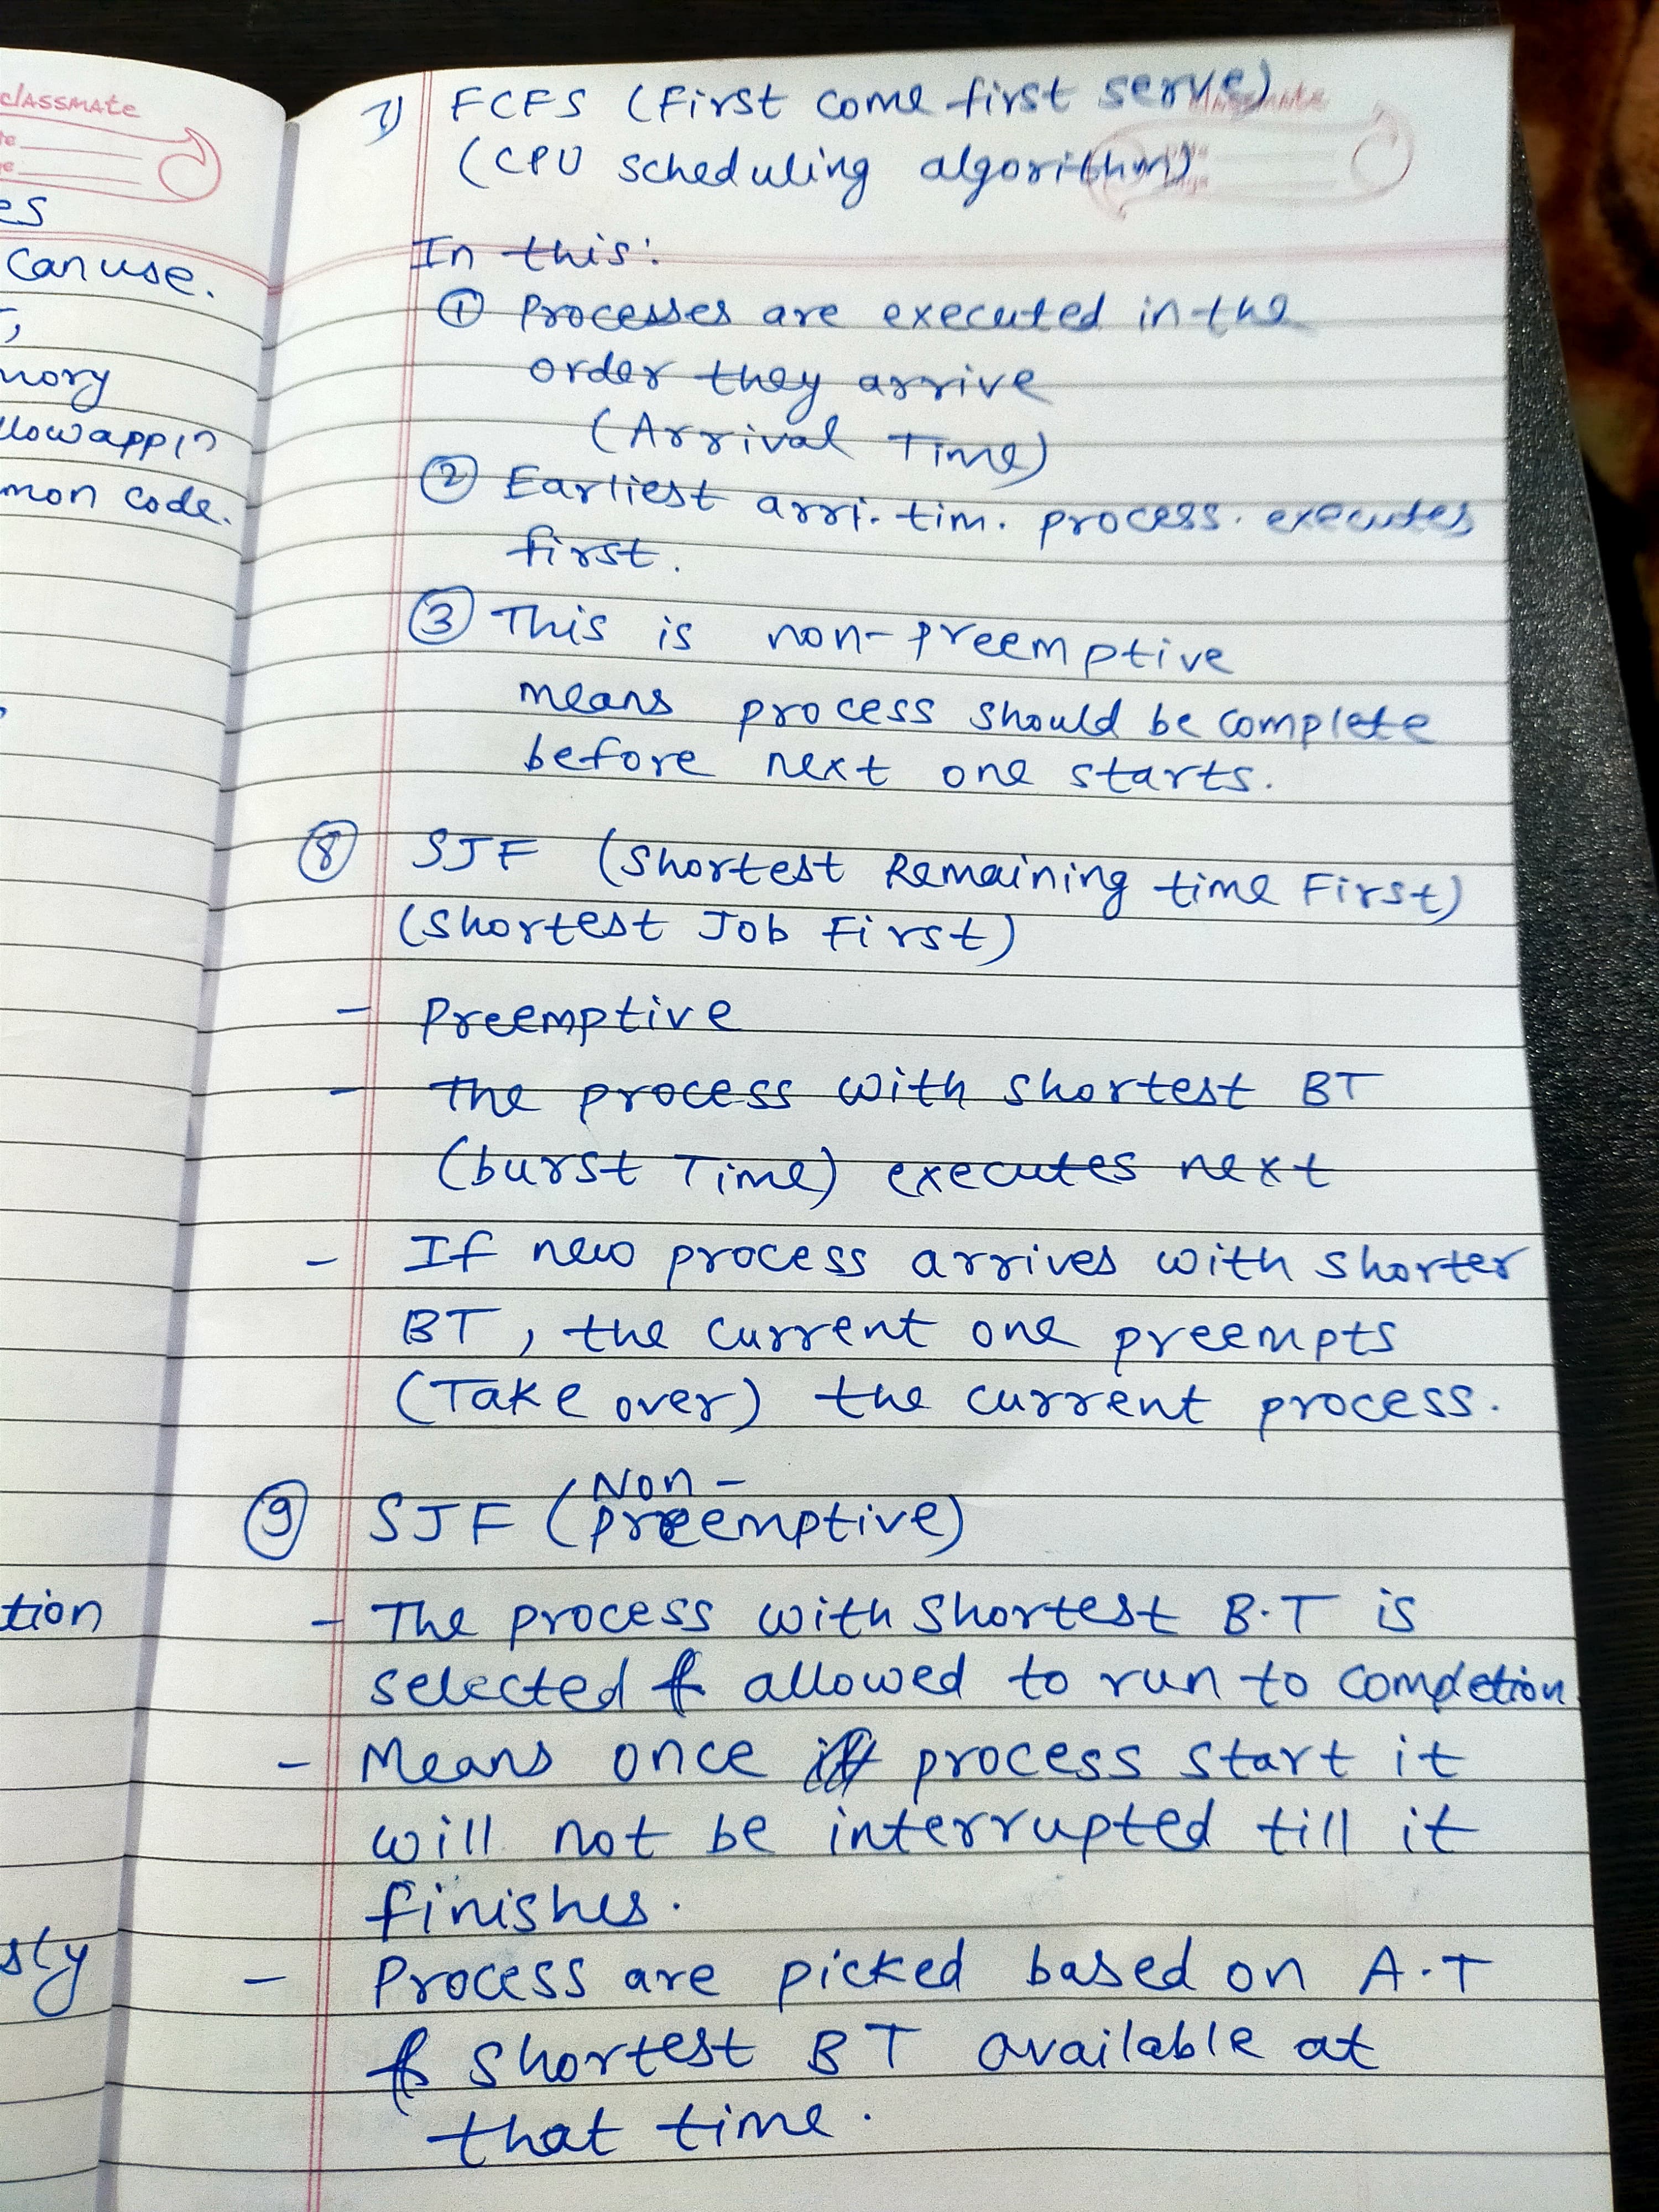 classmate
es
can use.
mory
llow appin
mon code.
tion
sly
7) FCFS (First come first serve)
(CPU scheduling algorithm)
In this:
① Processes are executed in the
order they arrive
(Arrival Time)
② Earliest arri. tim. process. executes
first.
③ This is non-preemptive
means process should be complete
before next one starts.
⑧ SJF (Shortest Remaining time First)
(Shortest Job First)
- Preemptive
- The process with shortest BT
(burst Time) executes next
- If new process arrives with shorter
BT, the current one preempts
(Take over) the current process.
Non-
⑨ SJF (preemptive)
- The process with shortest B.T is
selected & allowed to run to completion
- Means once process start it
will not be interrupted till it
finishes.
- Process are picked based on A.T
& shortest BT available at
that time.